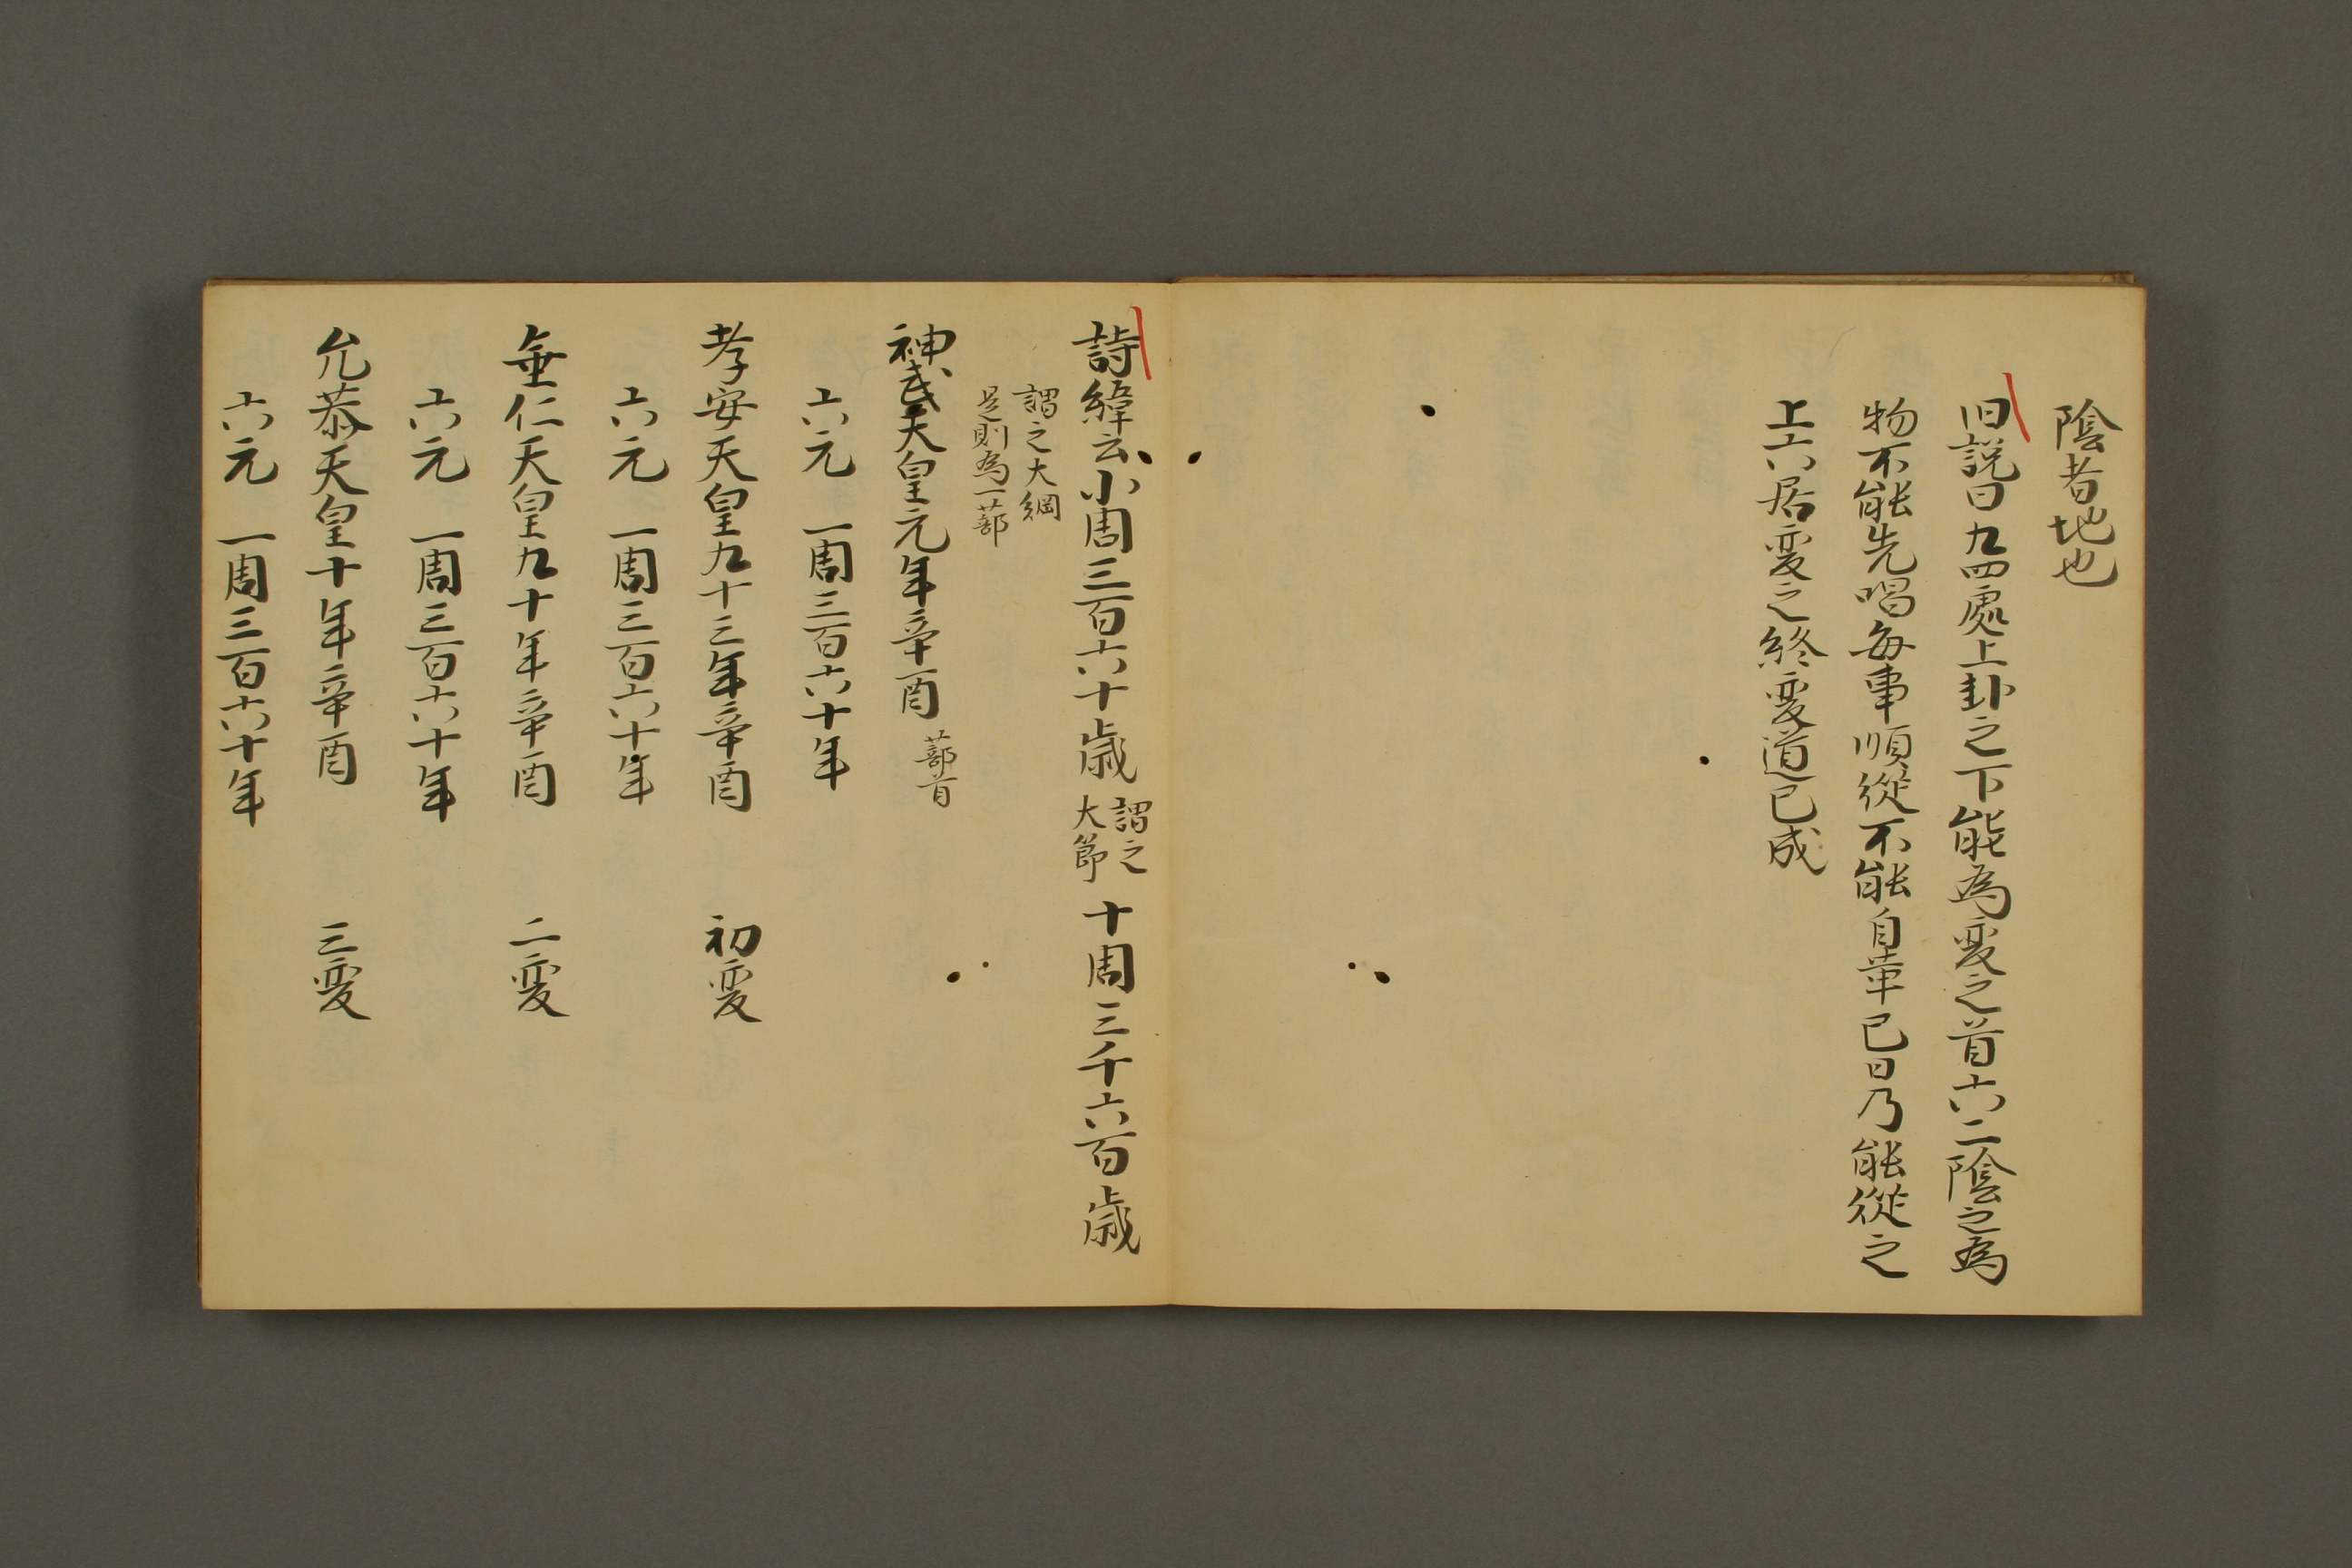 陰者地也
旧説曰九四處上卦之下能為変之首六二陰之為
物不能先唱毎事順從不能自革已日乃能從之
上六居変之終変道已成
詩緯云小周三百六十歳謂之大節十周三千六百歳
謂之大綱
是則為一蔀
神武天皇元年辛酉 蔀首
六元 一周三百六十年
孝安天皇九十三年辛酉 初変
六元 一周三百六十年
垂仁天皇九十年辛酉 二変
六元 一周三百六十年
允恭天皇十年辛酉 三変
六元 一周三百六十年